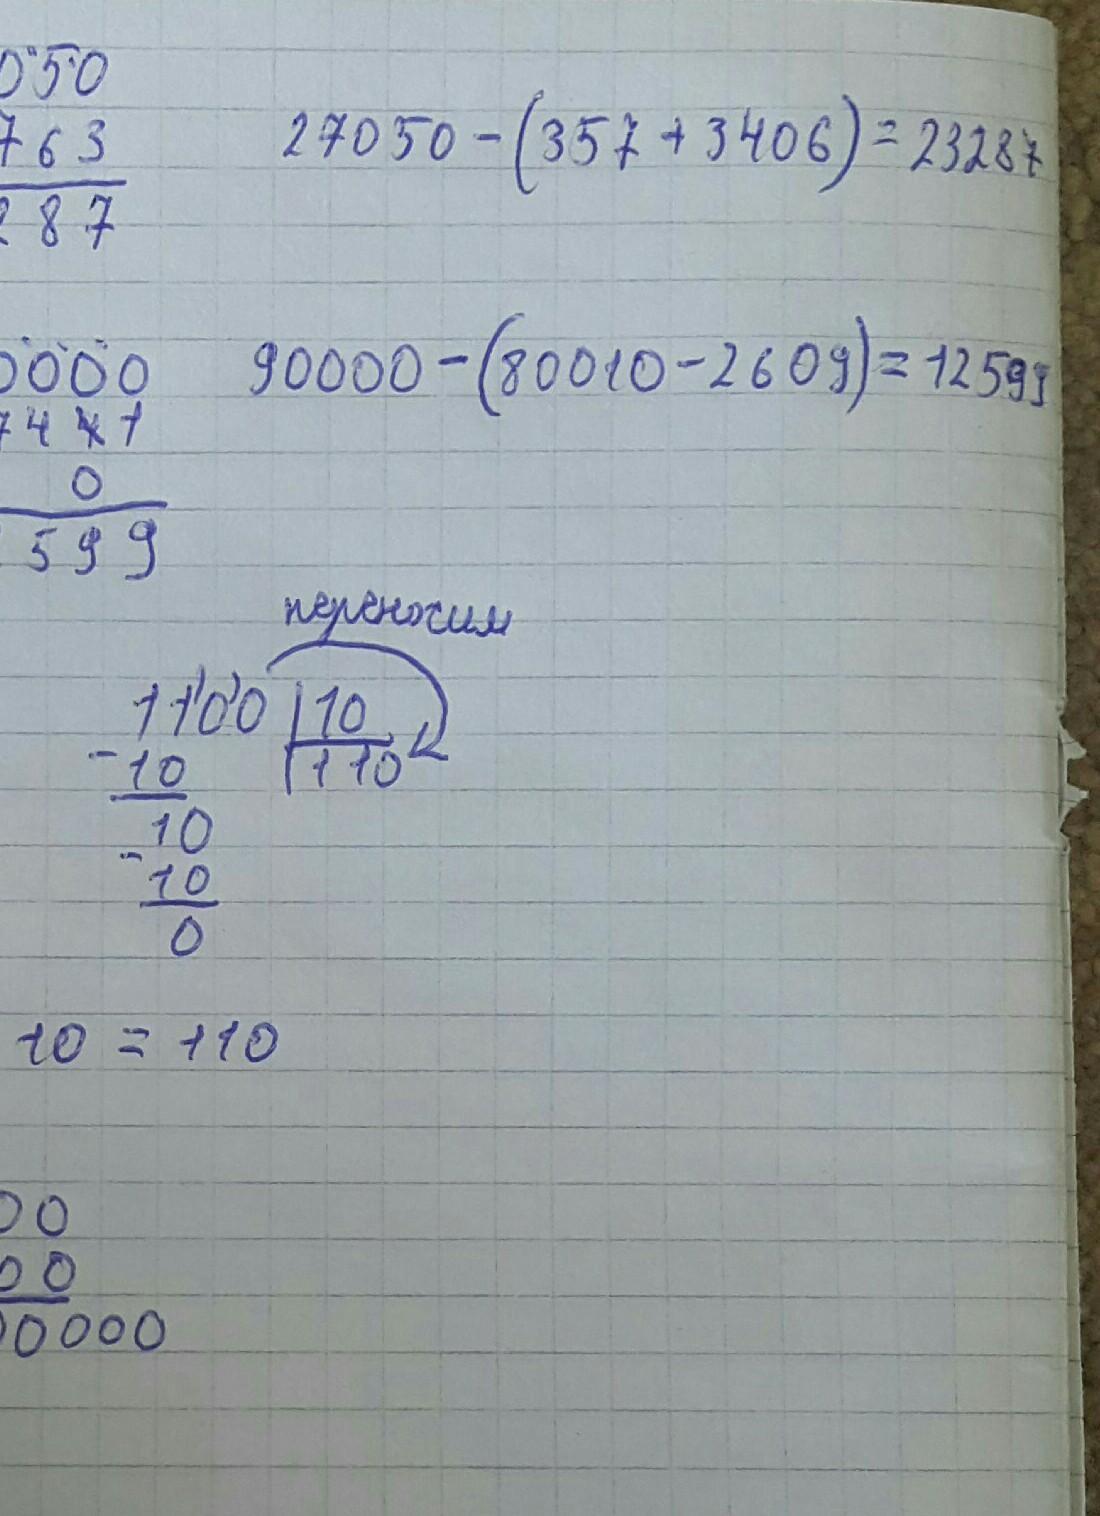 050
763 27050-(357+3406)=23287
287
0000 90000-(80010-2609)=12599
7441
0
599
переносим
1100 10
-10 110
10
-10
0
10 = 110
00
00
00000